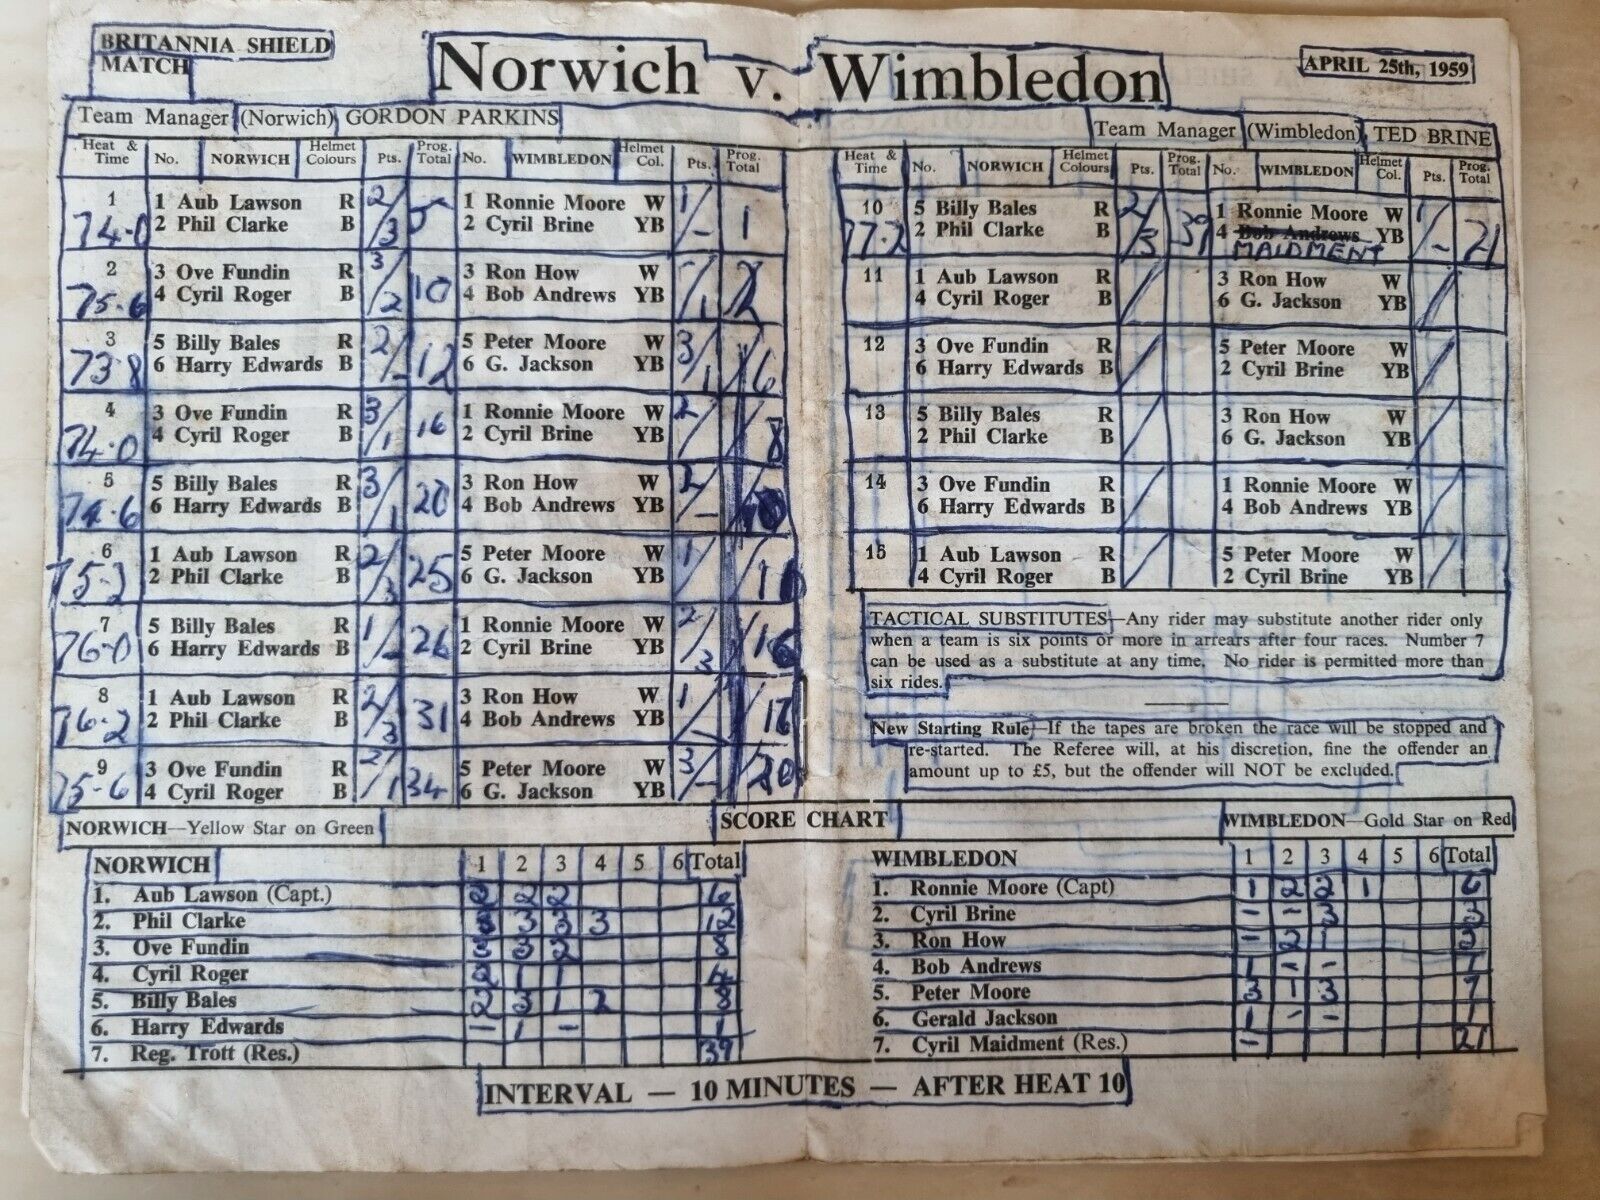 BRITANNIA SHIELD
MATCH
Norwich v. Wimbledon
APRIL 25th, 1959
Team Manager (Norwich) GORDON PARKINS
Team Manager (Wimbledon) TED BRINE
Heat & Time No. NORWICH Helmet Colours Pts. Prog. Total No. WIMBLEDON Helmet Col. Pts. Prog. Total
1 1 Aub Lawson R 2 1 Ronnie Moore W 1
74.0 2 Phil Clarke B 3 5 2 Cyril Brine YB - 1
2 3 Ove Fundin R 3 3 Ron How W -
75.6 4 Cyril Roger B 2 10 4 Bob Andrews YB 1 2
3 5 Billy Bales R 2 5 Peter Moore W 3
73.8 6 Harry Edwards B - 12 6 G. Jackson YB 1 6
4 3 Ove Fundin R 3 1 Ronnie Moore W 2
74.0 4 Cyril Roger B 1 16 2 Cyril Brine YB 8
5 5 Billy Bales R 3 3 Ron How W 2
74.6 6 Harry Edwards B 1 20 4 Bob Andrews YB - 10
6 1 Aub Lawson R 2 5 Peter Moore W 1
2 Phil Clarke B 3 25 6 G. Jackson YB
7 5 Billy Bales R 1 1 Ronnie Moore W 2
76.0 6 Harry Edwards B - 26 2 Cyril Brine YB 3 16
8 1 Aub Lawson R 2 3 Ron How W 1
76.2 2 Phil Clarke B 3 31 4 Bob Andrews YB - 17
9 3 Ove Fundin R 2 5 Peter Moore W 3
75.6 4 Cyril Roger B 1 34 6 G. Jackson YB - 20
Heat & Time No. NORWICH Helmet Colours Pts. Prog. Total No. WIMBLEDON Helmet Col. Pts. Prog. Total
10 5 Billy Bales R 2 1 Ronnie Moore W 1
77.2 2 Phil Clarke B 3 39 4 Bob Andrews YB - 21
MAIDMENT
11 1 Aub Lawson R 3 Ron How W
4 Cyril Roger B 6 G. Jackson YB
12 3 Ove Fundin R 5 Peter Moore W
6 Harry Edwards B 2 Cyril Brine YB
13 5 Billy Bales R 3 Ron How W
2 Phil Clarke B 6 G. Jackson YB
14 3 Ove Fundin R 1 Ronnie Moore W
6 Harry Edwards B 4 Bob Andrews YB
15 1 Aub Lawson R 5 Peter Moore W
4 Cyril Roger B 2 Cyril Brine YB
TACTICAL SUBSTITUTES—Any rider may substitute another rider only
when a team is six points or more in arrears after four races. Number 7
can be used as a substitute at any time. No rider is permitted more than
six rides.
New Starting Rule—If the tapes are broken the race will be stopped and
re-started. The Referee will, at his discretion, fine the offender an
amount up to £5, but the offender will NOT be excluded.
NORWICH—Yellow Star on Green
SCORE CHART
WIMBLEDON—Gold Star on Red
NORWICH 1 2 3 4 5 6 Total
1. Aub Lawson (Capt.) 2 2 2 6
2. Phil Clarke 3 3 3 3 12
3. Ove Fundin 3 3 2 8
4. Cyril Roger 2 1 1 4
5. Billy Bales 2 3 1 2 8
6. Harry Edwards - 1 - 1
7. Reg. Trott (Res.) 39
WIMBLEDON 1 2 3 4 5 6 Total
1. Ronnie Moore (Capt) 1 2 2 1 6
2. Cyril Brine - - 3 3
3. Ron How - 2 1 3
4. Bob Andrews 1 - - 1
5. Peter Moore 3 1 3 7
6. Gerald Jackson 1 - - 1
7. Cyril Maidment (Res.) - 21
INTERVAL — 10 MINUTES — AFTER HEAT 10